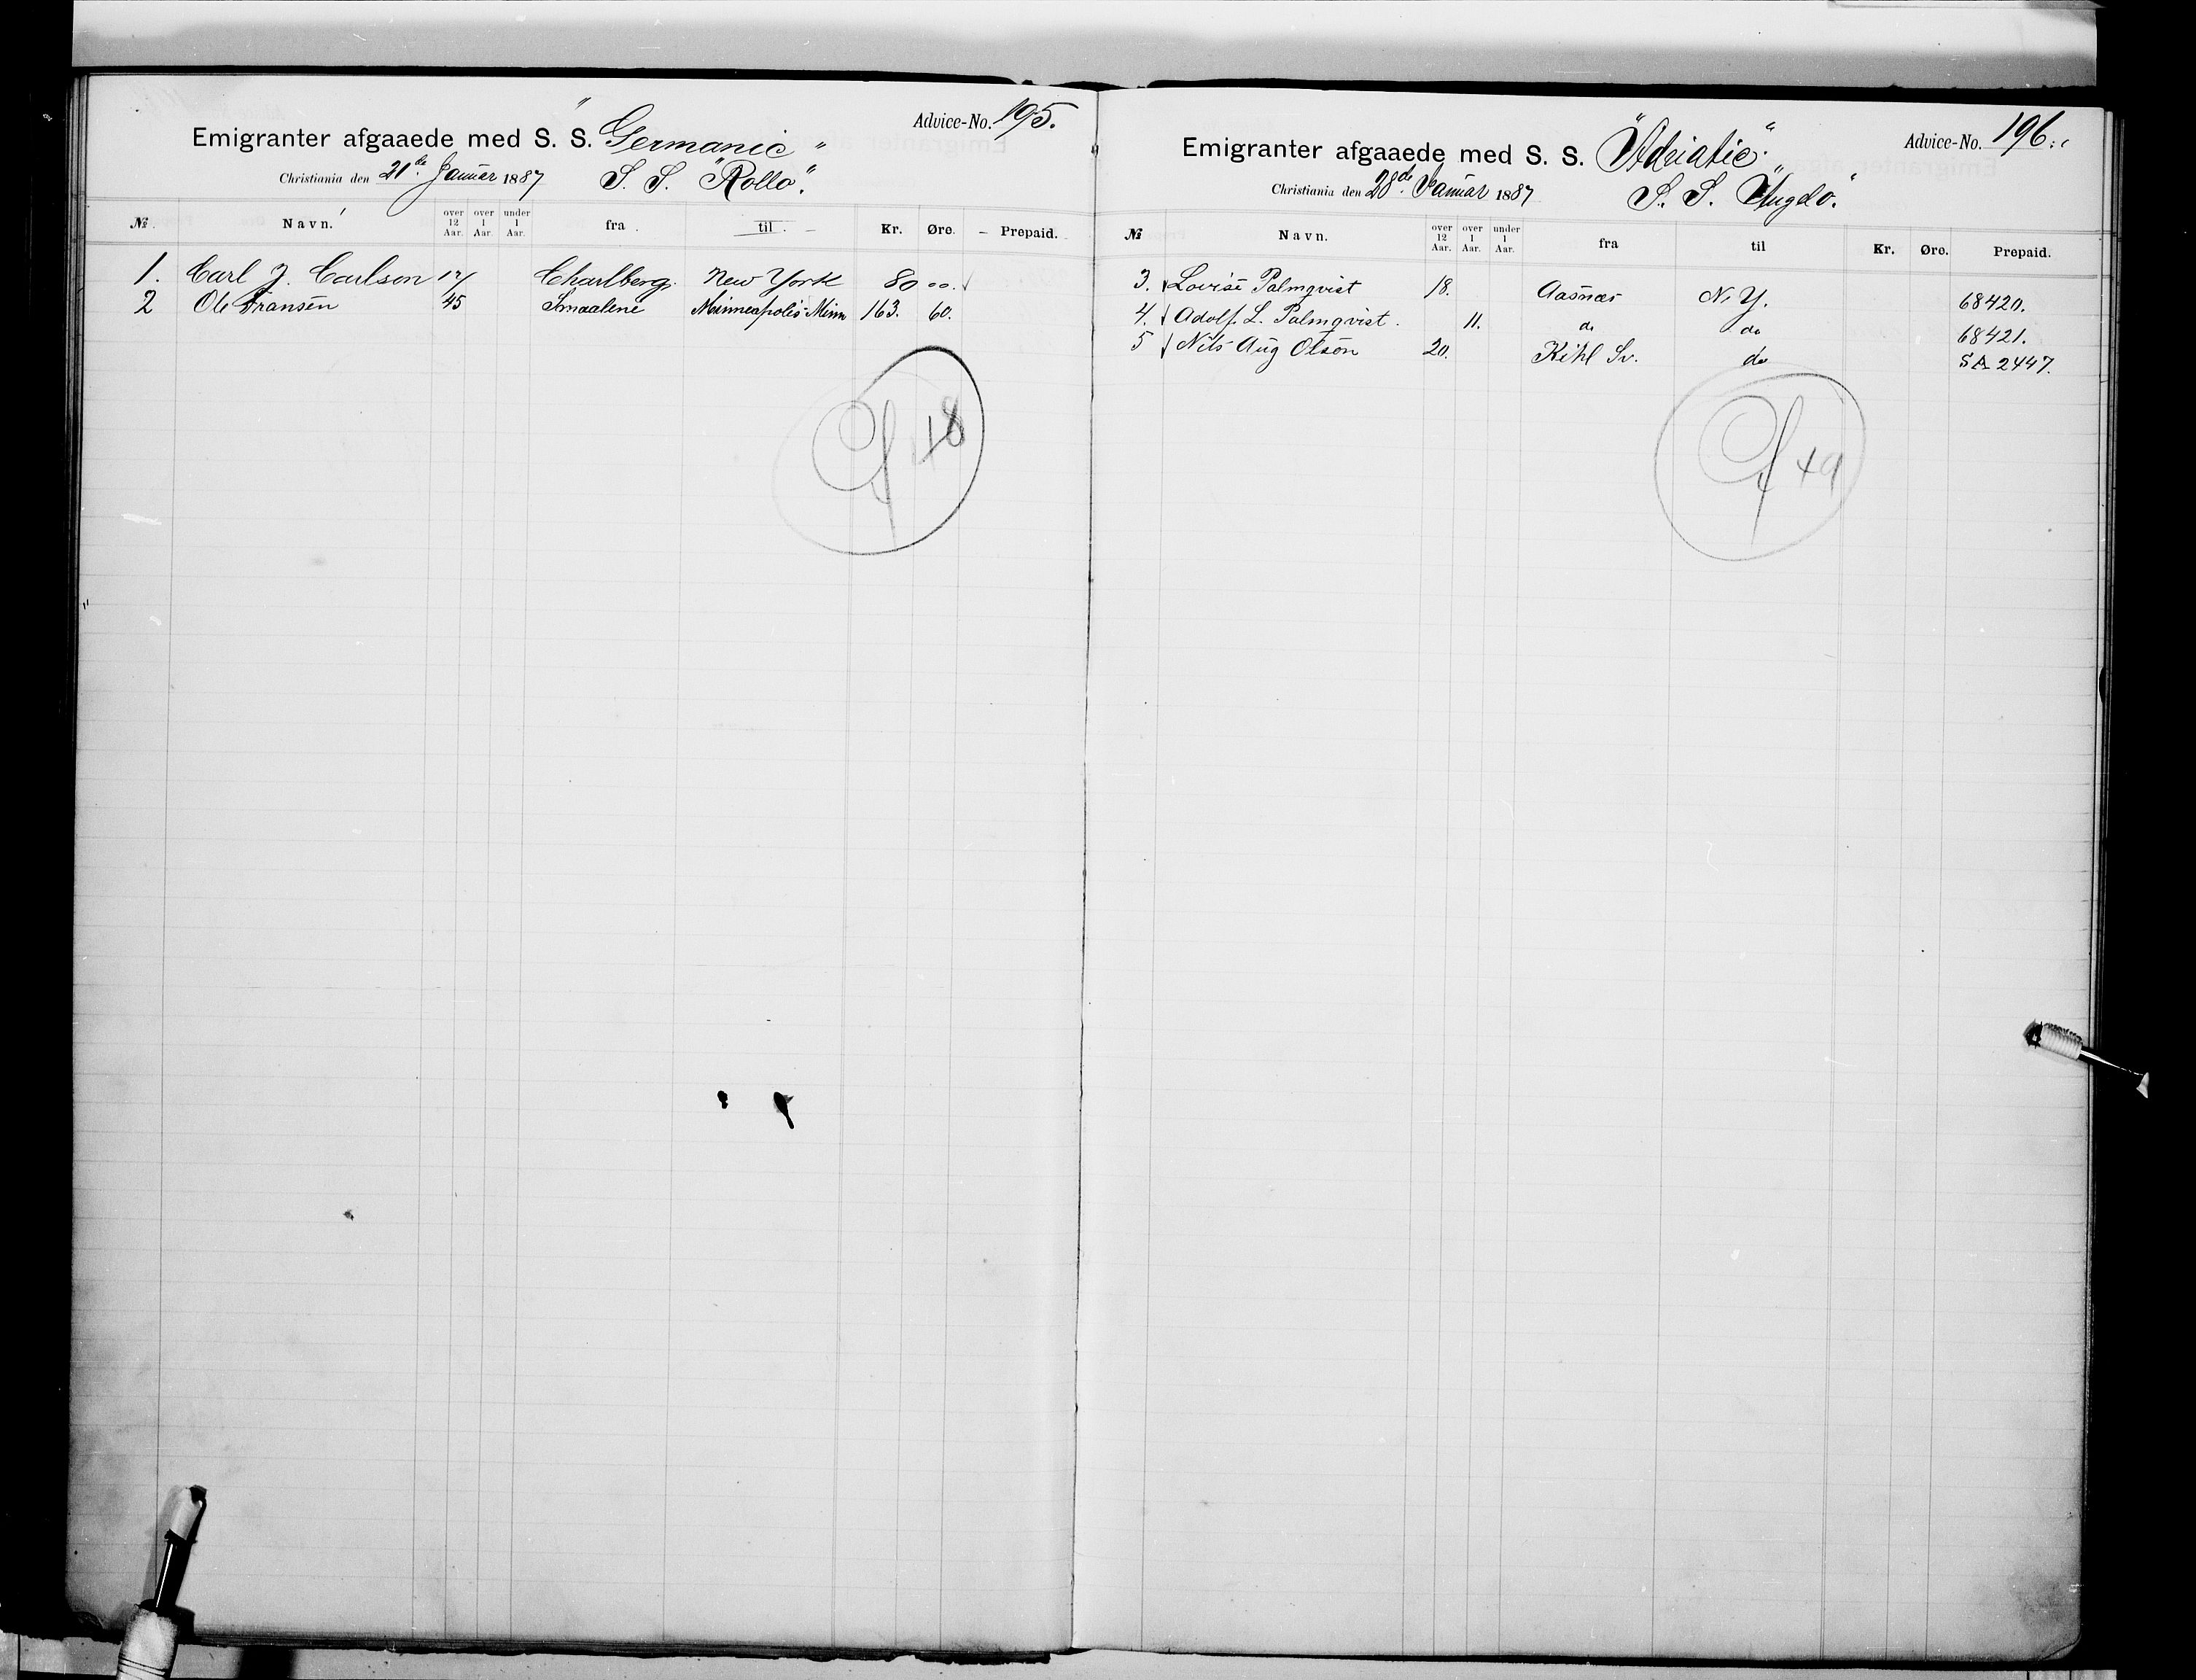 Advice-No. 195.
Emigranter afgaaede med S. S. "Germanic"
Christiania den 21de Januar 1887 S. S. "Rollo".
№ Navn. over 12 Aar. over 1 Aar. under 1 Aar. fra til Kr. Øre. Prepaid.
1. Carl J. Carlson 17 Charlberg. New York 80 00.
2 Ole Fransen 45 Smaalene Minneapolis Minn 163. 60.
48
Advice-No. 196.
Emigranter afgaaede med S. S. "Adriatic"
Christiania den 28de Januar 1887 S. S. "Angelo"
№ Navn. over 12 Aar. over 1 Aar. under 1 Aar. fra til Kr. Øre. Prepaid.
3. Lovise Palmqvist 18. Aasnæs N. Y. 68420.
4. Adolf. L. Palmqvist. 11. do do 68421.
5 Nils Aug Olson 20. Kihl Sv. do SA 2447.
49